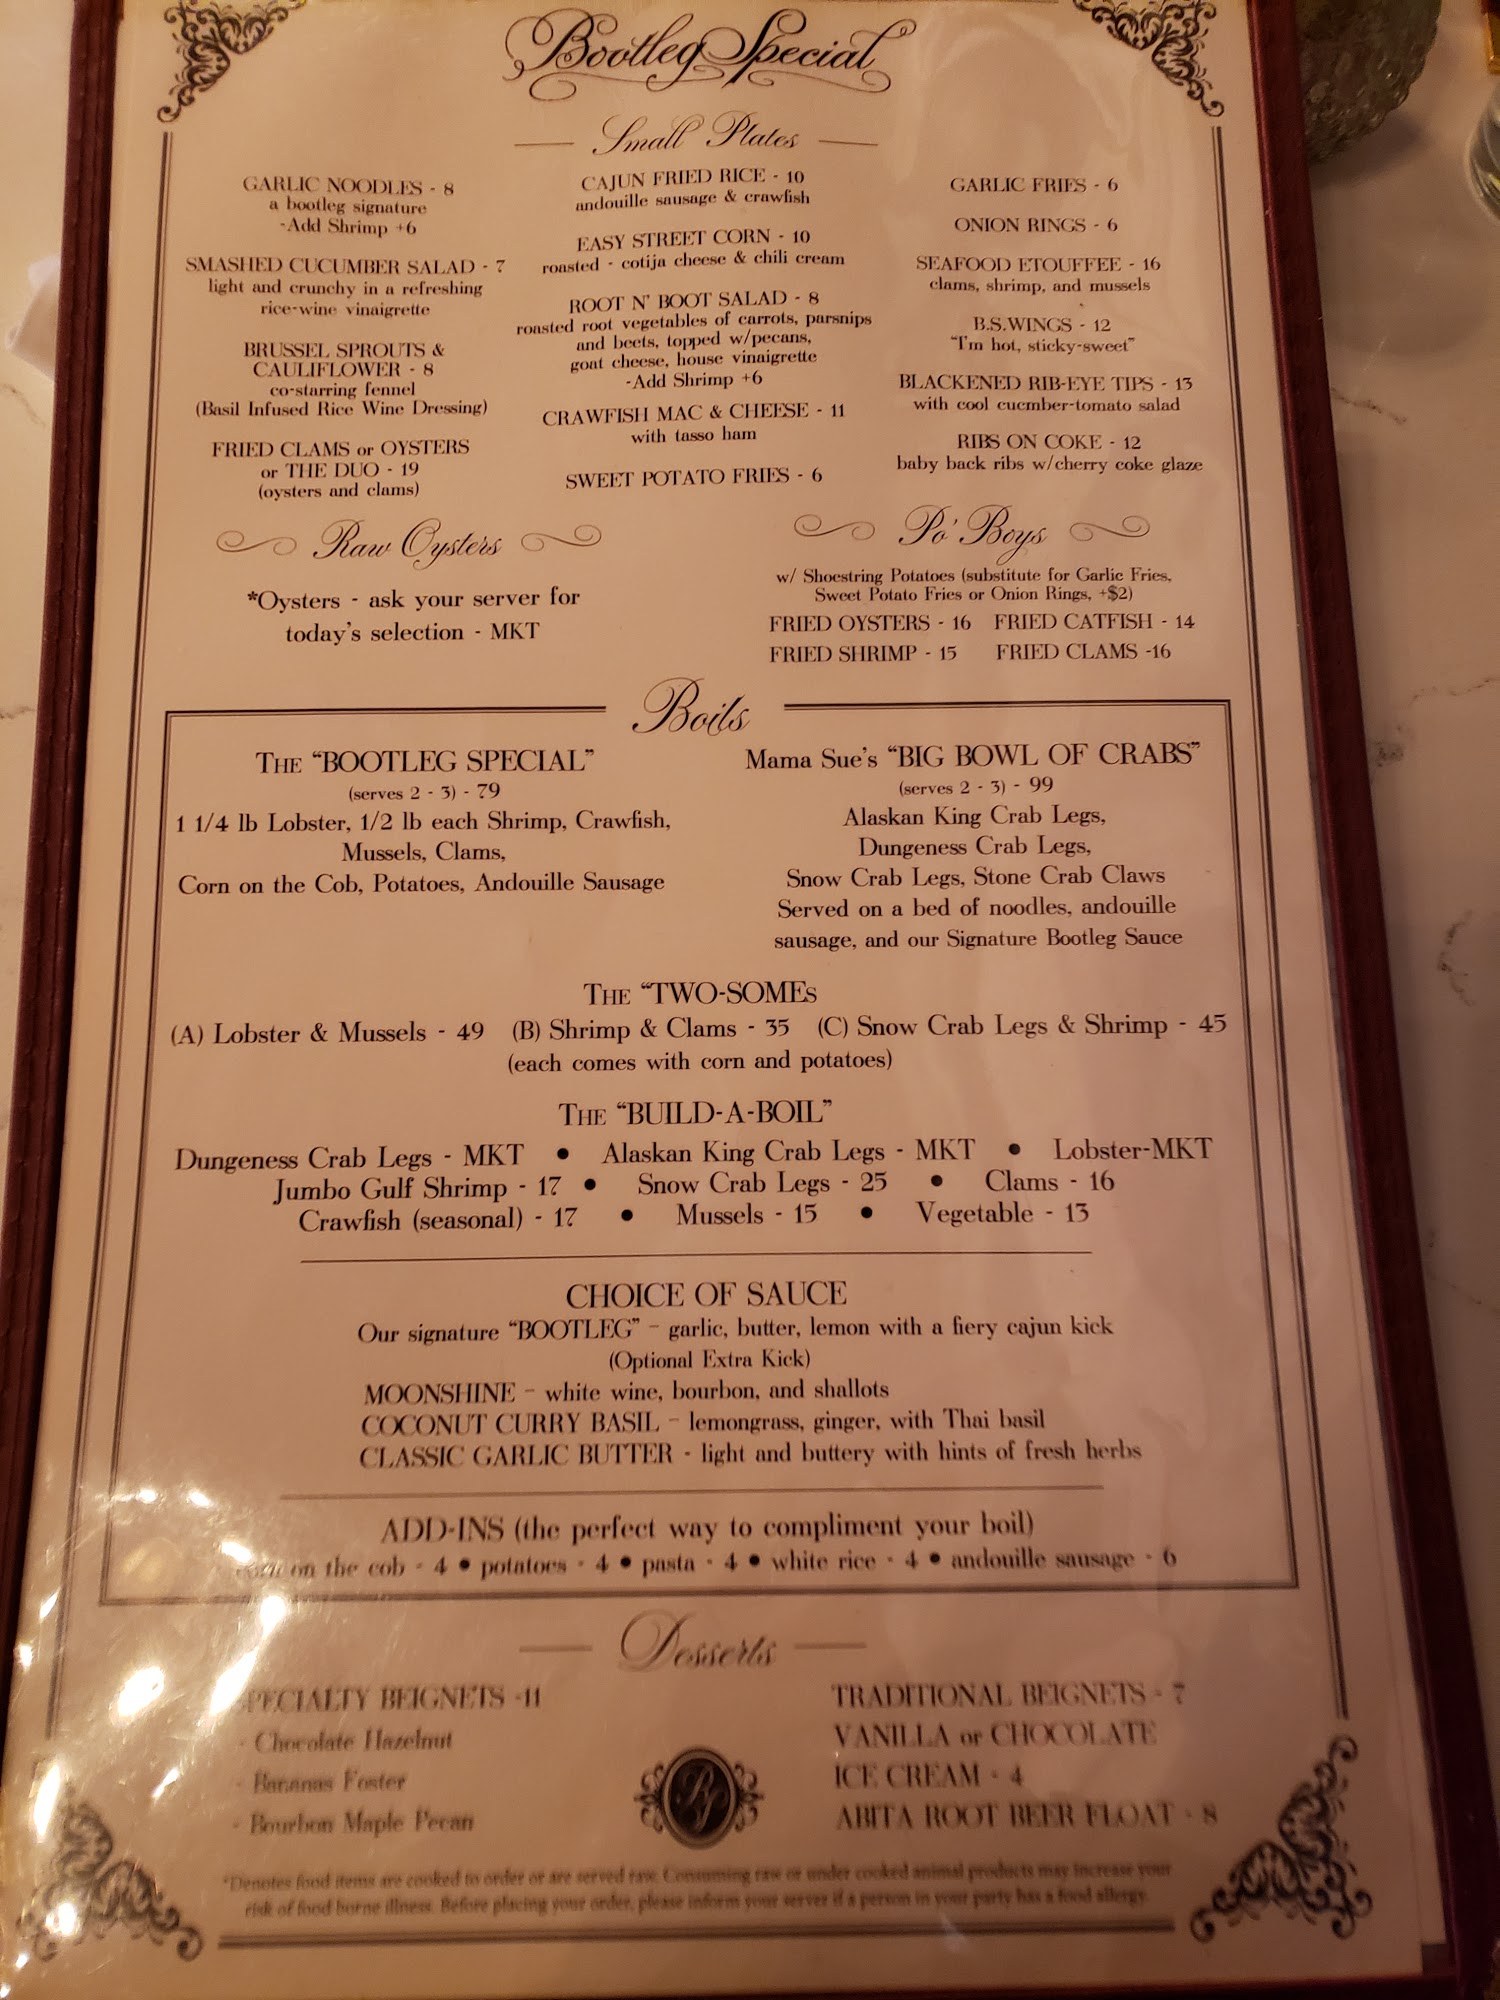 Bootleg Special
Small Plates
GARLIC NOODLES - 8
a bootleg signature
-Add Shrimp +6
SMASHED CUCUMBER SALAD - 7
light and crunchy in a refreshing
rice-wine vinaigrette
BRUSSEL SPROUTS &
CAULIFLOWER - 8
co-starring fennel
(Basil Infused Rice Wine Dressing)
FRIED CLAMS or OYSTERS
or THE DUO - 19
(oysters and clams)
CAJUN FRIED RICE - 10
andouille sausage & crawfish
EASY STREET CORN - 10
roasted - cotija cheese & chili cream
ROOT N' BOOT SALAD - 8
roasted root vegetables of carrots, parsnips
and beets, topped w/pecans,
goat cheese, house vinaigrette
-Add Shrimp +6
CRAWFISH MAC & CHEESE - 11
with tasso ham
SWEET POTATO FRIES - 6
GARLIC FRIES - 6
ONION RINGS - 6
SEAFOOD ETOUFFEE - 16
clams, shrimp, and mussels
B.S.WINGS - 12
"I'm hot, sticky-sweet"
BLACKENED RIB-EYE TIPS - 13
with cool cucmber-tomato salad
RIBS ON COKE - 12
baby back ribs w/cherry coke glaze
Raw Oysters
*Oysters - ask your server for
today's selection - MKT
Po' Boys
w/ Shoestring Potatoes (substitute for Garlic Fries,
Sweet Potato Fries or Onion Rings, +$2)
FRIED OYSTERS - 16 FRIED CATFISH - 14
FRIED SHRIMP - 15 FRIED CLAMS -16
Boils
THE "BOOTLEG SPECIAL"
(serves 2 - 3) - 79
1 1/4 lb Lobster, 1/2 lb each Shrimp, Crawfish,
Mussels, Clams,
Corn on the Cob, Potatoes, Andouille Sausage
Mama Sue's "BIG BOWL OF CRABS"
(serves 2 - 3) - 99
Alaskan King Crab Legs,
Dungeness Crab Legs,
Snow Crab Legs, Stone Crab Claws
Served on a bed of noodles, andouille
sausage, and our Signature Bootleg Sauce
THE "TWO-SOMES
(A) Lobster & Mussels - 49 (B) Shrimp & Clams - 35 (C) Snow Crab Legs & Shrimp - 45
(each comes with corn and potatoes)
THE "BUILD-A-BOIL"
Dungeness Crab Legs - MKT • Alaskan King Crab Legs - MKT • Lobster-MKT
Jumbo Gulf Shrimp - 17 • Snow Crab Legs - 25 • Clams - 16
Crawfish (seasonal) - 17 • Mussels - 15 • Vegetable - 13
CHOICE OF SAUCE
Our signature "BOOTLEG" - garlic, butter, lemon with a fiery cajun kick
(Optional Extra Kick)
MOONSHINE - white wine, bourbon, and shallots
COCONUT CURRY BASIL - lemongrass, ginger, with Thai basil
CLASSIC GARLIC BUTTER - light and buttery with hints of fresh herbs
ADD-INS (the perfect way to compliment your boil)
corn on the cob - 4 • potatoes - 4 • pasta - 4 • white rice - 4 • andouille sausage - 6
Desserts
SPECIALTY BEIGNETS -11
- Chocolate Hazelnut
- Bananas Foster
- Bourbon Maple Pecan
TRADITIONAL BEIGNETS - 7
VANILLA or CHOCOLATE
ICE CREAM - 4
ABITA ROOT BEER FLOAT - 8
BS
*Denotes food items are cooked to order or are served raw. Consuming raw or under cooked animal products may increase your
risk of food borne illness. Before placing your order, please inform your server if a person in your party has a food allergy.